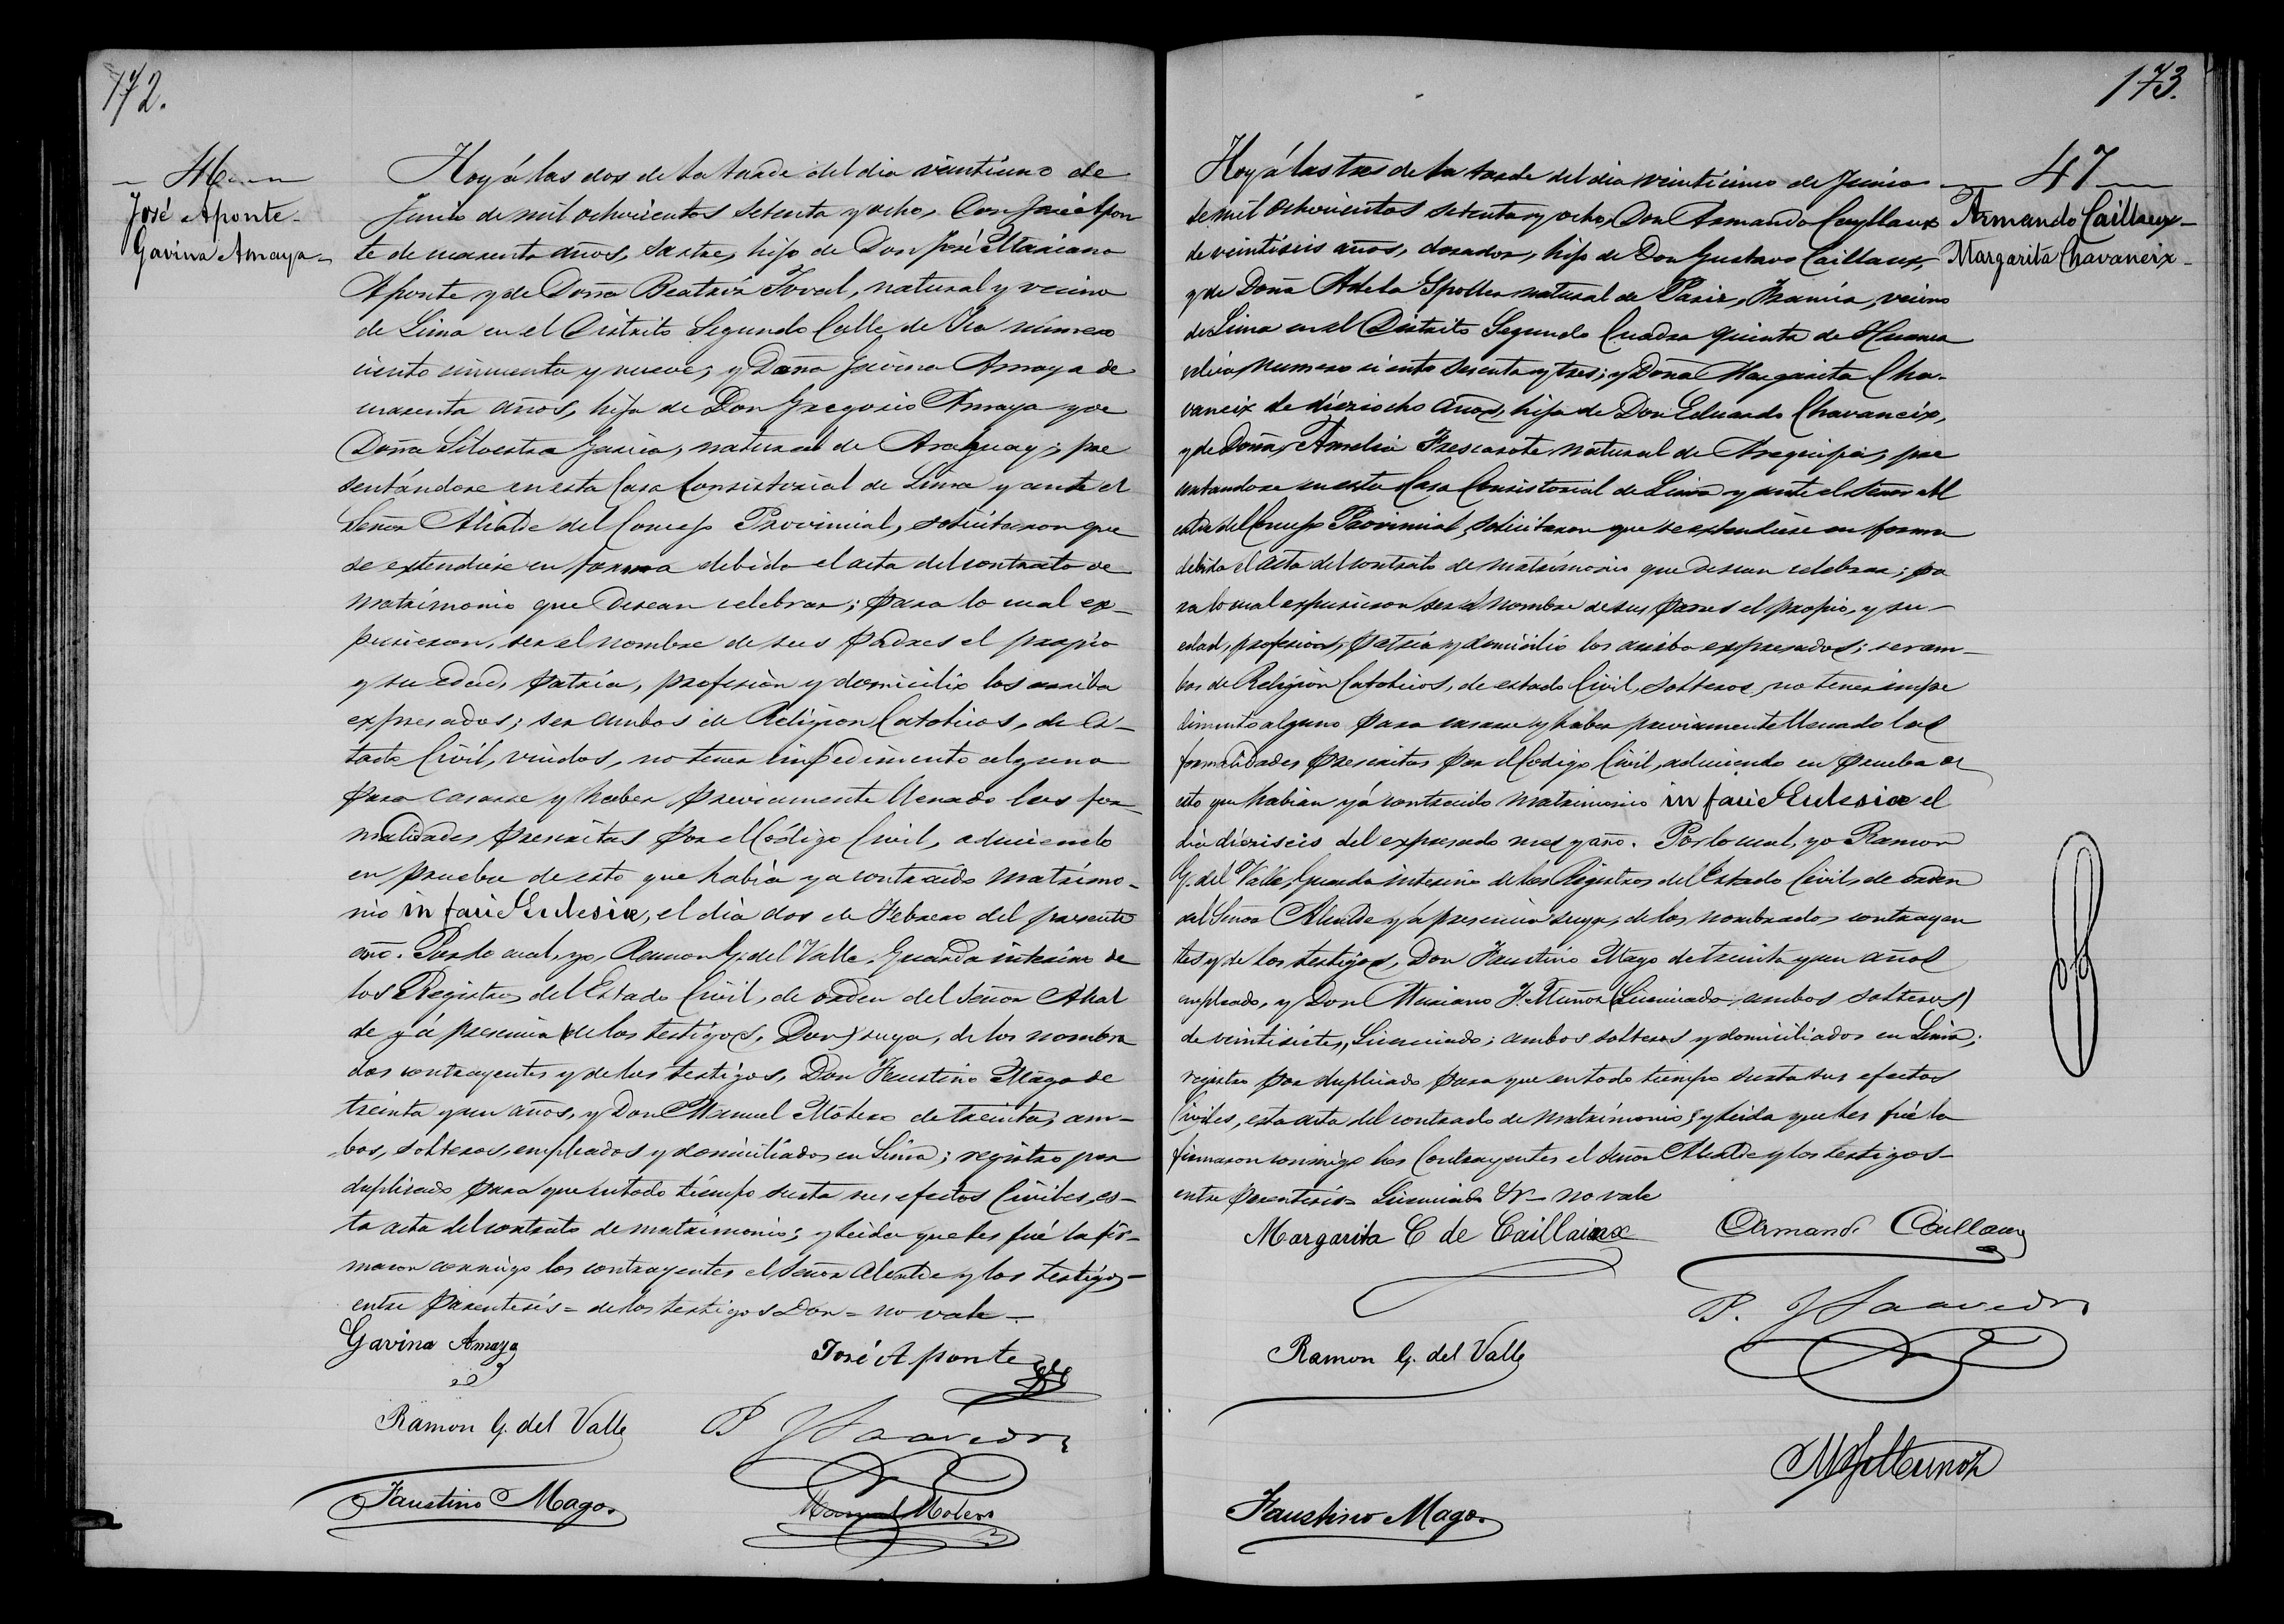 172.
46
José Aponte
Gavina Amaya
Hoy á las dos de la tarde del dia veintiuno de
Junio de mil ochocientos setenta y ocho, Don José Apon
te de cuarenta años, sastre, hijo de Don José Mariano
Aponte y de Doña Beatriz Toval, natural y vecino
de Lima en el Distrito Segundo Calle de Ica número
ciento cincuenta y nueve; y Doña Gavina Amaya de
cuarenta años, hija de Don Gregorio Amaya y de
Doña Silvestra Garcia, natural de Araguay; pre
sentándose en esta Casa Consistorial de Lima y ante el
Señor Alcalde del Concejo Provincial, solicitaron que
se extendiese en forma debida el acta del contrato de
matrimonio que desean celebrar; para lo cual ex-
pusieron, ser el nombre de sus padres el propio
y su edad, patria, profesion y domicilio los arriba
expresados; ser ambos de Religion Catolicos, de es-
tado Civil, viudos, no tener impedimento alguno
para casarse y haber previamente llenado las for-
malidades prescritas por el Código Civil, aduciendo
en prueba de esto que habia ya contraido matrimo-
nio in facie Eclesiæ, el dia dos de Febrero del presente
año. Por lo cual, yo, Ramon G. del Valle, Guarda interino de
los Registros del Estado Civil, de orden del Señor Alcal
de y á presencia (de los testigos, Don) suya, de los nombra
dos contrayentes y de los testigos, Don Faustino Mago de
treinta y un años, y Don Manuel Molero de treinta, am-
bos, solteros, empleados y domiciliados en Lima; registro por
duplicado para que en todo tiempo surta sus efectos Civiles, es-
ta acta del contrato de matrimonio; y leida que les fué la fir-
maron conmigo los contrayentes el Señor Alcalde y los testigos-
entre parentesis = de los testigos Don = no vale -
Gavina Amaya
José Aponte
Ramon G. del Valle
P Saavedra
Faustino Mago
Manuel Molero
173.
47
Armando Caillaux
Margarita Chavaneix
Hoy á las tres de la tarde del dia veinticinco de Junio
de mil ochocientos setenta y ocho, Don Armando Cayllaux
de veintiseis años, dorador, hijo de Don Gustavo Caillaux,
y de Doña Adela natural de Paris, Francia, vecino
de Lima en el Distrito Segundo Cuadra quinta de Huanca
velica, numero ciento sesenta y tres; y Doña Margarita Cha-
vaneix de dieziocho años, hija de Don Eduardo Chavaneix,
y de Doña Amelia Frescarote natural de Arequipa; pre
sentandose en esta Casa Consistorial de Lima y ante el Señor Al
calde del Concejo Provincial, solicitaron que se extendiese en forma
debida el acta del contrato de matrimonio que desean celebrar; pa
ra lo cual expusieron ser el nombre de sus padres el propio, y su
edad, profesion, patria y domicilio los arriba expresados; ser am-
bos de Religion Catolicos, de estado Civil, solteros, no tener impe
dimento alguno para casarse y haber previamente llenado las
formalidades prescritas por el Codigo Civil, aduciendo en prueba de
esto que habian yá contraido matrimonio in facie Eclesiæ el
dia dieziseis del expresado mes y año. Por lo cual, yo Ramon
G. del Valle, Guarda interino de los Registros del Estado Civil, de orden
del Señor Alcalde y á presencia suya, de los nombrados contrayen
tes y de los testigos, Don Faustino Mago de treinta y un años
empleado, y Don Mariano F. Muñoz (Licenciado, ambos solteros)
de veintisiete, Licenciado; ambos solteros y domiciliados en Lima;
registro por duplicado para que en todo tiempo surta sus efectos
Civiles, esta acta del contrado de matrimonio; y leida que les fué la
firmaron conmigo los Contrayentes el Señor Alcalde y los testigos-
entre parentesis = Licenciado &- no vale
Margarita C de Caillaux
Armand Caillaux
P. Saavedra
Ramon G. del Valle
M F Munoz
Faustino Mago